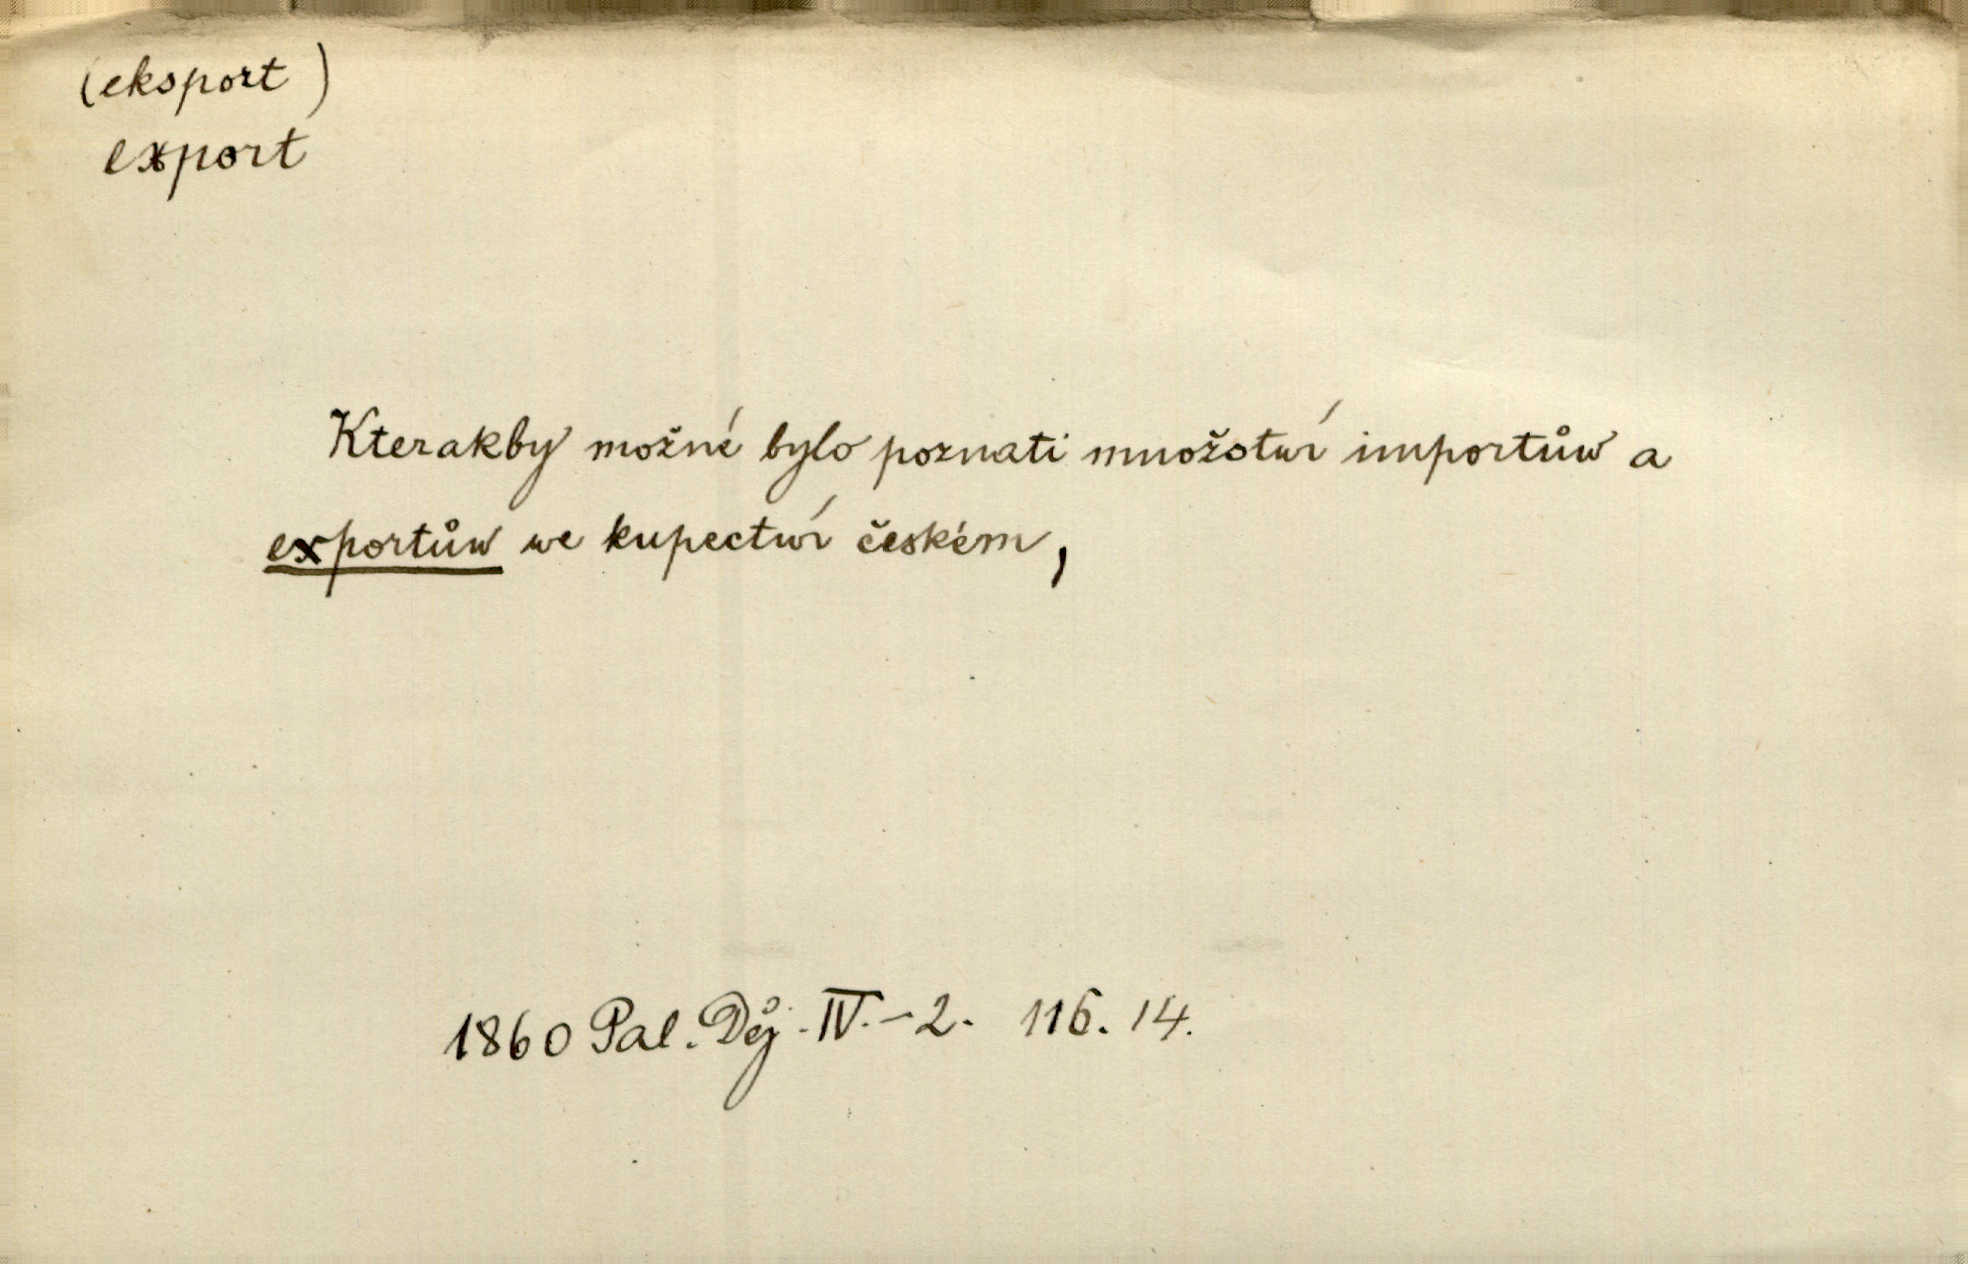 (eksport)
export
Kterakby možné bylo poznati množstwí importůw a
exportůw we kupectwí českém,
1860 Pal. Děj. IV.-2. 116. 14.